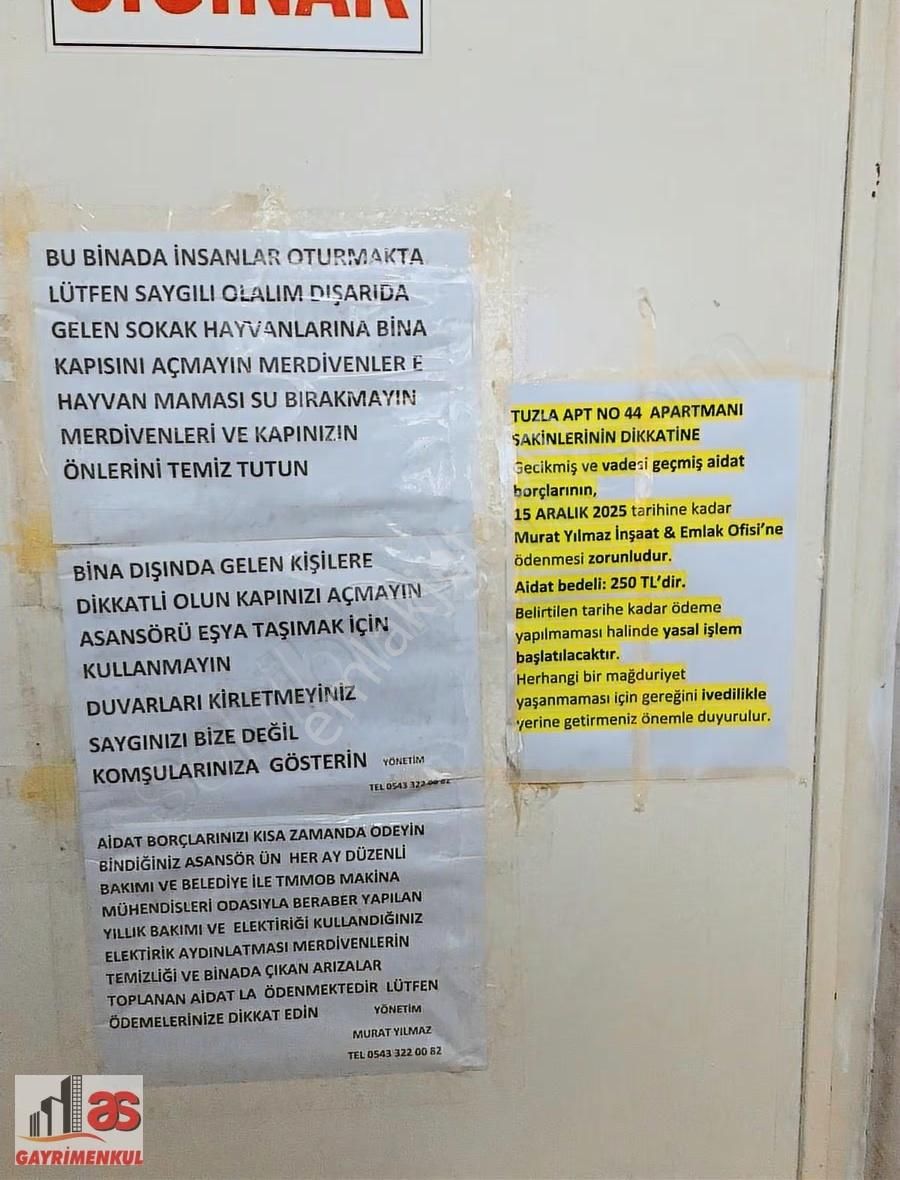 SIĞINAK
BU BİNADA İNSANLAR OTURMAKTA
LÜTFEN SAYGILI OLALIM DIŞARIDA
GELEN SOKAK HAYVANLARINA BİNA
KAPISINI AÇMAYIN MERDİVENLER E
HAYVAN MAMASI SU BIRAKMAYIN
MERDİVENLERİ VE KAPINIZIN
ÖNLERİNİ TEMİZ TUTUN
BİNA DIŞINDA GELEN KİŞİLERE
DİKKATLİ OLUN KAPINIZI AÇMAYIN
ASANSÖRÜ EŞYA TAŞIMAK İÇİN
KULLANMAYIN
DUVARLARI KİRLETMEYİNİZ
SAYGINIZI BİZE DEĞİL
KOMŞULARINIZA GÖSTERİN YÖNETİM
TEL 0543 322 00 82
AİDAT BORÇLARINIZI KISA ZAMANDA ÖDEYİN
BİNDİĞİNİZ ASANSÖR ÜN HER AY DÜZENLİ
BAKIMI VE BELEDİYE İLE TMMOB MAKİNA
MÜHENDİSLERİ ODASIYLA BERABER YAPILAN
YILLIK BAKIMI VE ELEKTİRİĞİ KULLANDIĞINIZ
ELEKTİRİK AYDINLATMASI MERDİVENLERİN
TEMİZLİĞİ VE BİNADA ÇIKAN ARIZALAR
TOPLANAN AİDAT LA ÖDENMEKTEDİR LÜTFEN
ÖDEMELERİNİZE DİKKAT EDİN YÖNETİM
MURAT YILMAZ
TEL 0543 322 00 82
TUZLA APT NO 44 APARTMANI
SAKİNLERİNİN DİKKATİNE
Gecikmiş ve vadesi geçmiş aidat
borçlarının,
15 ARALIK 2025 tarihine kadar
Murat Yılmaz İnşaat & Emlak Ofisi’ne
ödenmesi zorunludur.
Aidat bedeli: 250 TL’dir.
Belirtilen tarihe kadar ödeme
yapılmaması halinde yasal işlem
başlatılacaktır.
Herhangi bir mağduriyet
yaşanmaması için gereğini ivedilikle
yerine getirmeniz önemle duyurulur.
as
GAYRİMENKUL